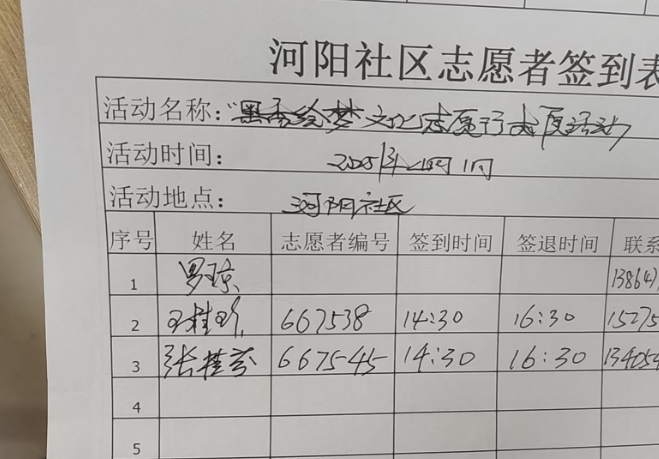 河阳社区志愿者签到表
活动名称："墨香绘梦 文化志愿行志愿活动
活动时间： 2025年
活动地点： 河阳社区
序号 姓名 志愿者编号 签到时间 签退时间 联系
1 罗琼 138647
2 王桂珍 667538 14:30 16:30 15275
3 张桂芬 667545 14:30 16:30 134054
4
5